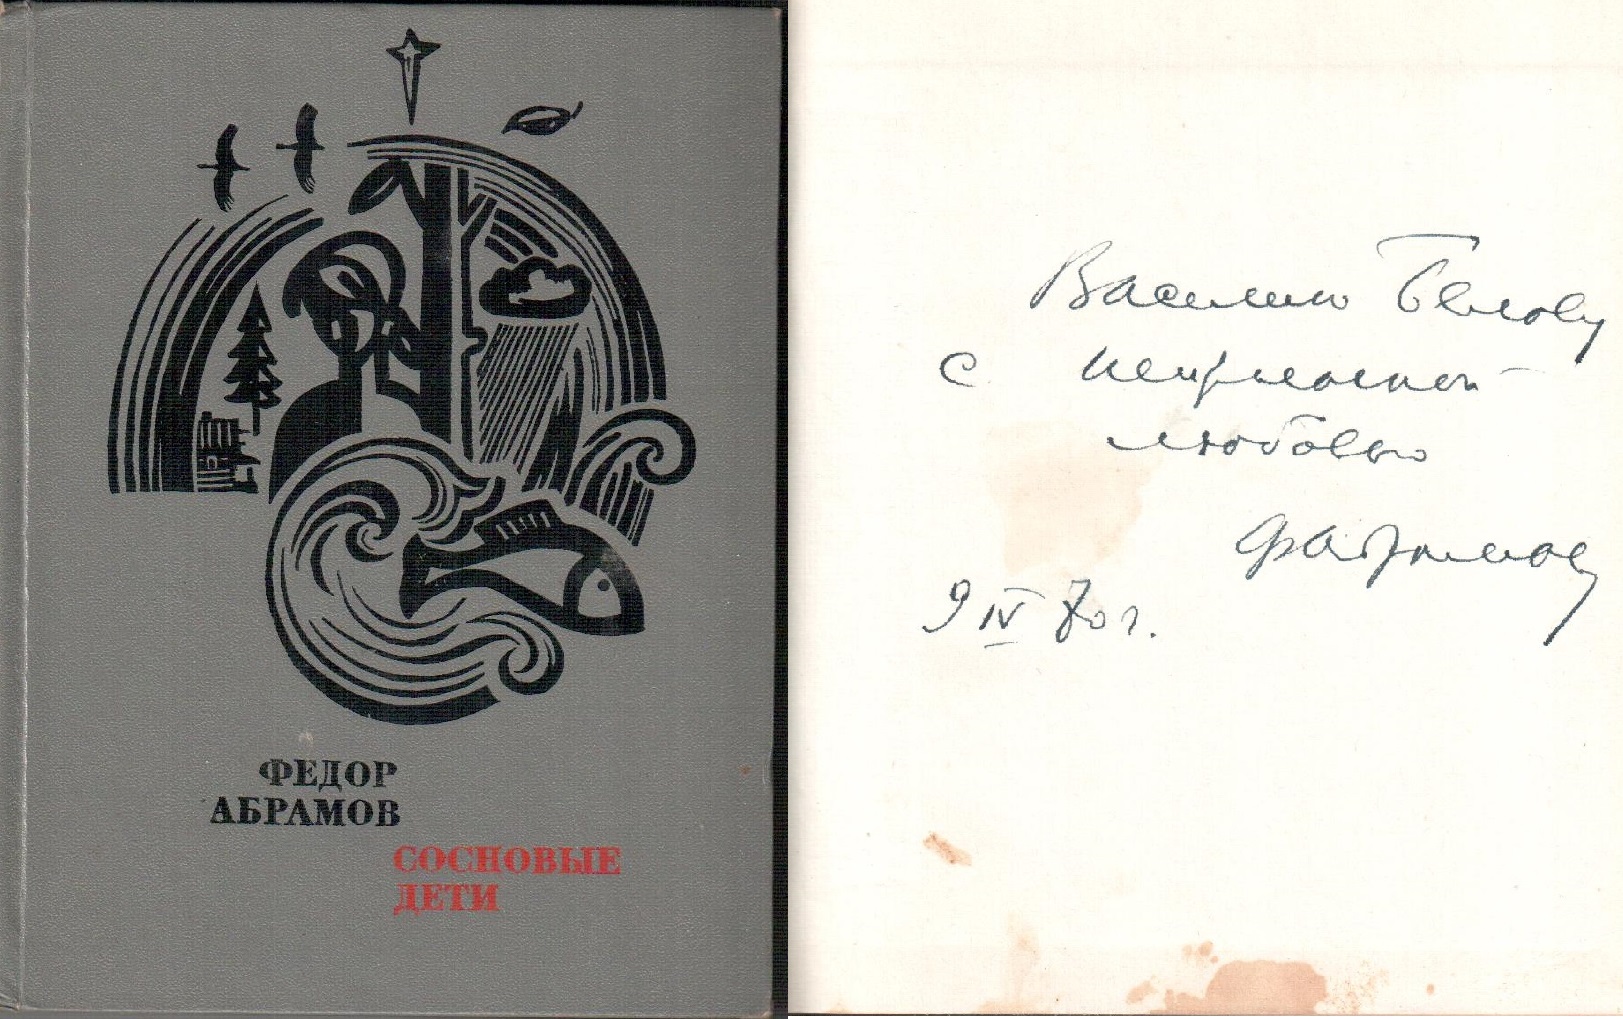 ФЕДОР
АБРАМОВ
СОСНОВЫЕ
ДЕТИ
Василию Белову
с неизменной
любовью
ФАбрамов
9 IV 70 г.